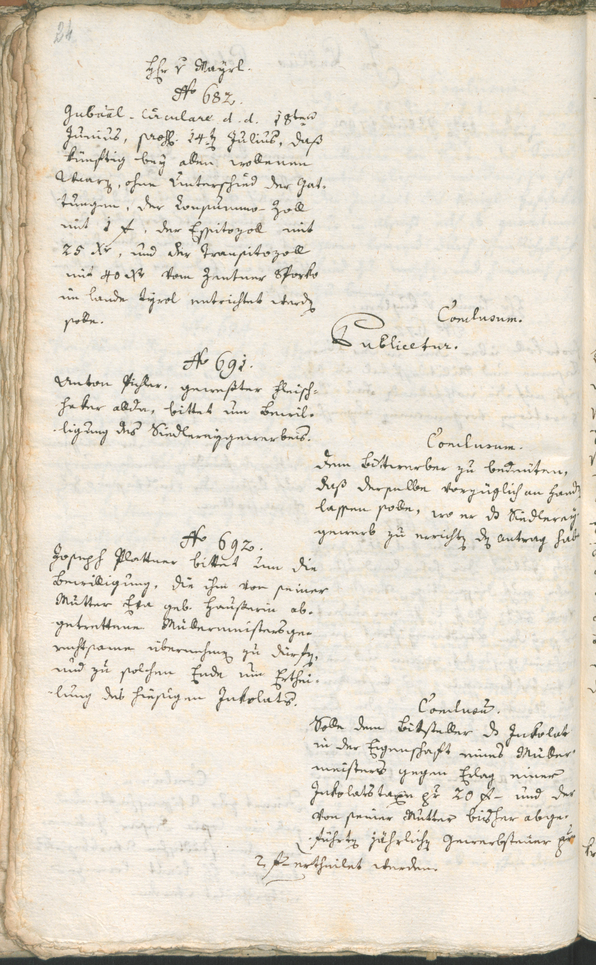 24
Hr. v Mayrl.
No 682.
Gubernial-Circulare d. d. 18ten
Junius, praes. 14. Julius, daß
künftig bey allen wollenen
Waaren, ohne Unterschied der Gat-
tungen, der Consummo-Zoll
mit 1 f, der Essitozoll mit
25 Xr, und der Transitozoll
mit 40 Xr vom Zentner Sporko
im Lande Tyrol entrichtet werden
solle.
Conclusum.
Publicetur.
No 691.
Anton Pichler, gewester Fleisch-
haker allda, bittet um Bewil-
ligung des Siedlereygewerbes.
Conclusum.
Dem Bittwerber zu bedeuten,
daß derselbe vorzüglich an Hand
lassen solle, wo er das Siedlerey
gewerb zu errichten den Antrag hab
No 692.
Joseph Plattner bittet um die
Bewilligung, die ihm von seiner
Mutter Eva geb. Hauserin ab-
getrettene Müllermeistersge-
rechtsame übernehmen zu dürfen,
und zu solchem Ende um Erthei-
lung des hiesigen Inkolats.
Conclusum.
Solle dem Bittsteller das Inkolat
in der Eigenschaft eines Müller
meisters gegen Erlag einer
Inkolatstaxe pr 20 f und der
von seiner Mutter bisher abge-
führten jährlichen Gewerbsteuer pr
2 f ertheilet werden.